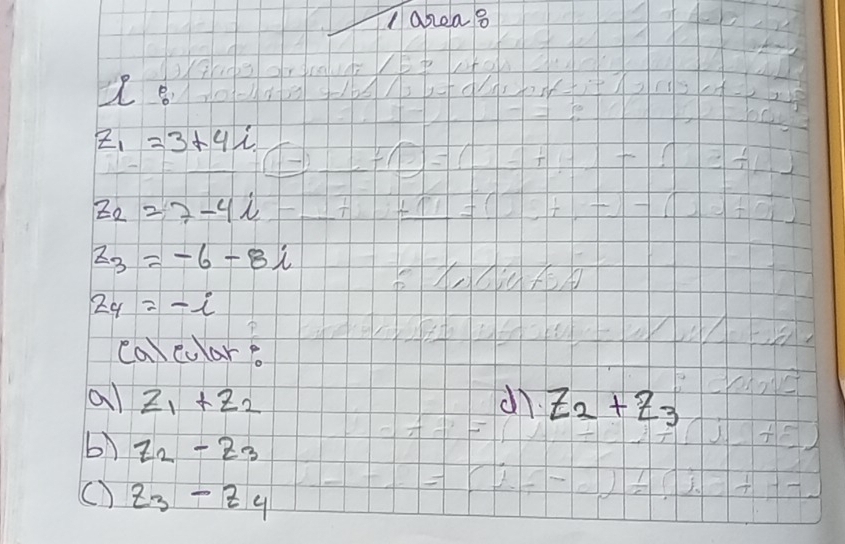 Tarea:
Z₁ = 3+4i
Z₂ = 7-4i
Z₃ = -6-8i
Z₄ = -i
Calcular:
a) Z₁ + Z₂
b) Z₂ - Z₃
c) Z₃ - Z₄
d) Z₂ + Z₃